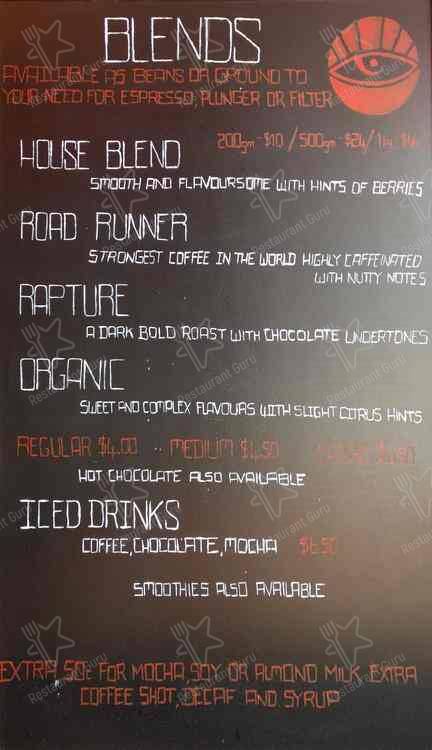 BLENDS
AVAILABLE AS BEANS OR GROUND TO
YOUR NEED FOR ESPRESSO, PLUNGER OR FILTER
200gm-$10 / 500gm-$24 /
HOUSE BLEND
SMOOTH AND FLAVOURSOME WITH HINTS OF BERRIES
ROAD RUNNER
STRONGEST COFFEE IN THE WORLD HIGHLY CAFFEINATED
WITH NUTTY NOTES
RAPTURE
A DARK BOLD ROAST WITH CHOCOLATE UNDERTONES
ORGANIC
SWEET AND COMPLEX FLAVOURS WITH SLIGHT CITRUS HINTS
REGULAR $4.00 MEDIUM $4.50
HOT CHOCOLATE ALSO AVAILABLE
ICED DRINKS
COFFEE, CHOCOLATE, MOCHA $6.50
SMOOTHIES ALSO AVAILABLE
EXTRA 50c FOR MOCHA, SOY OR ALMOND MILK, EXTRA
COFFEE SHOT, DECAF AND SYRUP
Restaurant Guru